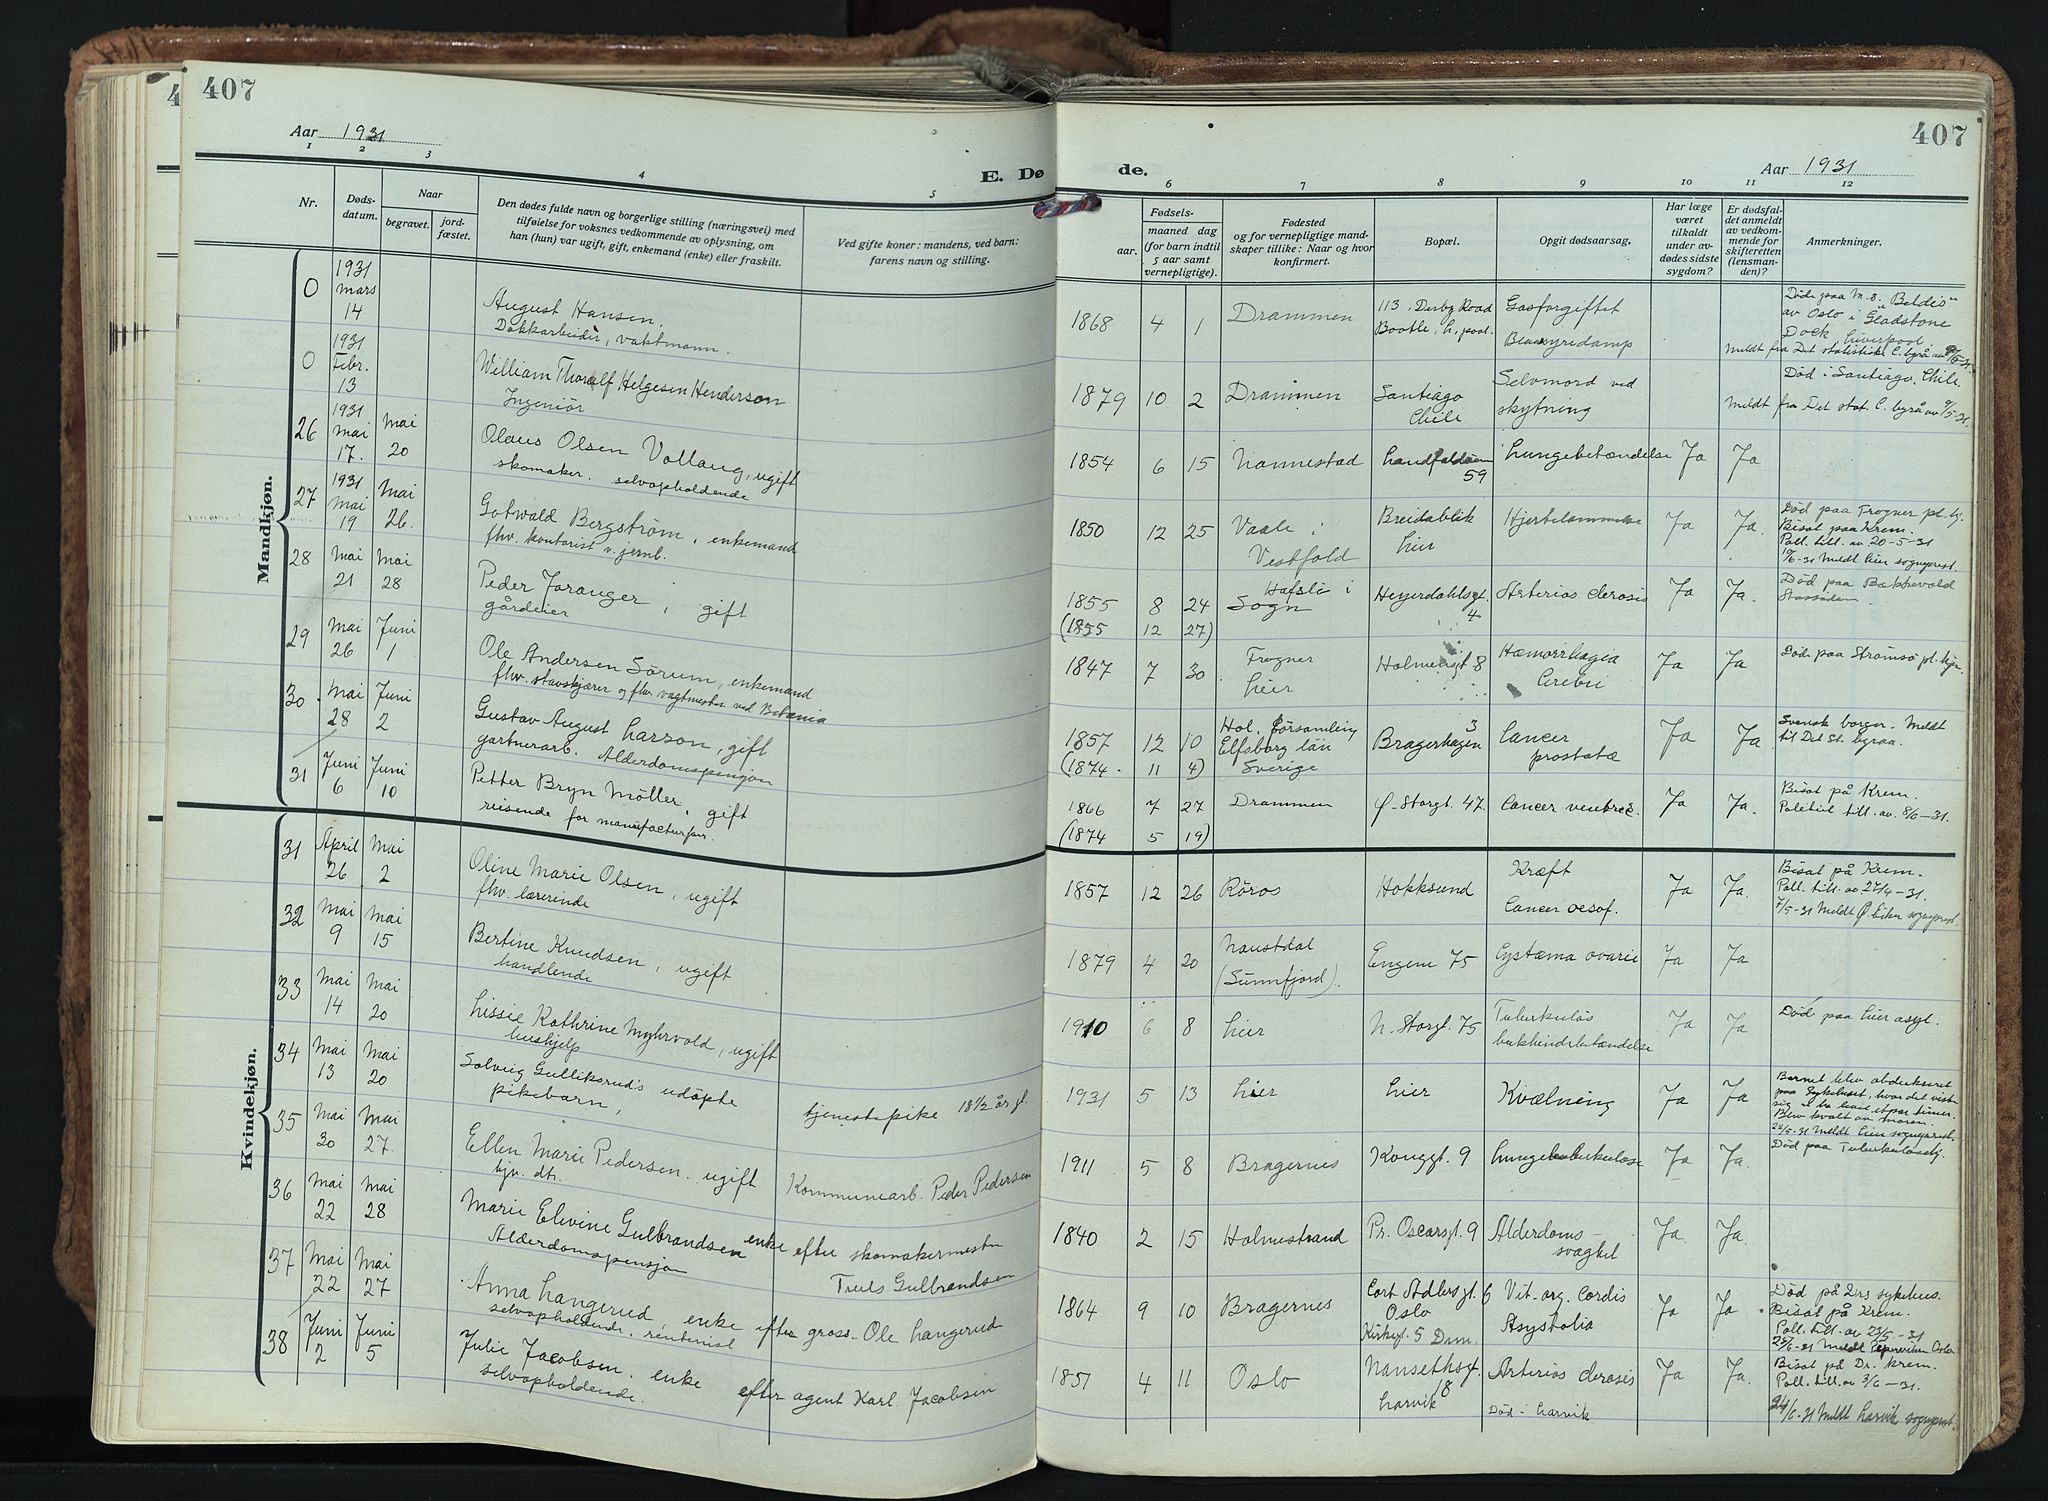 407
Aar 1931
E. Dø
1 2 3 4 5
Nr.
Dødsdatum.
Naar
begravet.
jordfæstet.
Den dødes fulde navn og borgerlige stilling (næringsvei) med
tilføielse for voksnes vedkommende av oplysning, om
han (hun) var ugift, gift, enkemand (enke) eller fraskilt.
Ved gifte koner: mandens, ved barn:
farens navn og stilling.
Mandkjøn.
0 1931 Mars 14 August Hansen,
Dokkarbeider, vaktmann.
0 1931 Febr. 13 William Thoralf Helgesen Henderson
Ingeniør
26 1931 Mai 17. Mai 20 Olaus Olsen Vollaug, ugift
skomaker. selvopholdende
27 1931 Mai 19 Mai 26. Gotwald Bergstrøm, enkemand
fhv. kontorist v. jernb.
28 Mai 21 Mai 28 Peder Joranger, gift
gårdeier
29 Mai 26 Juni 1 Ole Andersen Sörum, enkemand
fhv. stavskjærer og fhv. vagtmester ved Betania
30 Mai 28 Juni 2 Gustav August Larson, gift
gartnerarb. Alderdomspensjon
31 Juni 6 Juni 10 Petter Bryn Möller, gift
reisende for manufacturfor.
Kvindekjøn.
31 April 26 Mai 2 Oline Marie Olsen, ugift
fhv. lærerinde
32 Mai 9 Mai 15 Bertine Knudsen, ugift
handlende
33 Mai 14 Mai 20 Lissie Kathrine Myhrvold, ugift
hushjelp
34 Mai 13 Mai 20 Solveig Gulliksrud's udöpte
pikebarn, tjenestepike 18½ år gl.
35 Mai 30 Mai 27. Ellen Marie Pedersen, ugift Kommunearb. Peder Pedersen
hjv. dtr.
36 Mai 22 Mai 28 Marie Elevine Gulbrandsen enke efter skomakermester
Alderdomspensjon Truls Gulbrandsen
37 Mai 22 Mai 27 Anna Langerud, enke efter gross. Ole Langerud
selvopholdende. rentenist
38 Juni 2 Juni 5 Julie Jacobsen, enke efter agent Karl Jacobsen
selvopholdende.
407
Aar 1931
de.
6 7 8 9 10 11 12
Fødsels-
aar. maaned dag
(for barn indtil
5 aar samt
vernepligtige).
Fødested
og for vernepligtige mandskaper
tillike: Naar og hvor
konfirmert.
Bopæl.
Opgit dødsaarsag.
Har læge
været
tilkaldt
under avdødes
sidste
sygdom?
Er dødsfaldet
anmeldt
av vedkommende
for
skifteretten
(lensmanden)?
Anmerkninger.
1868 4 1 Drammen 113, Derby Road Bootle, L.pool. Gasforgiftet Blaasyredamp
Døde paa M.S. "Beldis"
av Oslo i Gladstone
Dock Liverpool
Meldt fra Det statistiske C. byrå av
1879 10 2 Drammen Santiago Chile Selvmord ved skytning
Død i Santiago, Chile.
Meldt fra Det stat. C. byrå av 9/5-31.
1854 6 15 Nannestad Landfaldöen 59 Lungebetændelse Ja Ja
1850 12 25 Vaale i Vestfold Breidablik Lier Hjertelammelse Ja Ja.
Död paa Frogner pl.hj.
Bisat paa Krem.
Poll. till. av 20-5-31
10/6-31 Meldt Lier sogneprest.
1855 8 24 Hafslo i Sogn Heyerdahlsgt. 4 Arterios clerosis Ja Ja.
(1855 12 27)
Död paa Bakkevold
1847 7 30 Frogner Lier Holmensgt. 8 Hæmorrhagia Cerebri Ja Ja
Döde paa Strømsø pl. hjm.
1857 12 10 Hol, församling Elfsborg län Sverige Bragerhagen 3 Cancer prostatæ Ja Ja.
(1874. 11 4)
Svensk borger. Meldt
til Det St. byraa.
1866 7 27 Drammen Ø. Storgt. 47. Cancer ventric. Ja Ja.
(1874 5 19)
Bisat på Krem.
Politiet till. av. 8/6-31.
1857 12 26 Röros Hokksund Kræft Cancer oesof. Ja Ja.
Bisat på Krem.
Poll. till. av 27/4-31.
7/5-31 Meldt Ø. Eiker sogneprest.
1879 4 20 Naustdal (Sunnfjord). Engene 75 Cystæma ovarie Ja Ja
1910 6 8 Lier N. Storgt. 75 Tuberkuløs bukhindebetændelse Ja Ja
Död paa Lier asyl.
1931 5 13 Lier Lier Kvælning Ja Ja
Barnet blev obduseret
paa Sykehuset, hvor det
sig et par timer.
Blev kvalt av moren.
22/5-31 Meldt Lier sogneprest.
1911 5 8 Bragernes Konggt. 9 Lungetuberkulose Ja Ja.
Död paa Tuberkulosehj.
1840 2 15 Holmestrand Pr. Oscarsgt. 9 Alderdomssvaghet Ja. Ja.
1864 9 10 Bragernes Cort Adlersgt. 6 Oslo Kirkegt. 5 Drm. Vit. org. Cordis Asystolia Ja Ja.
Död på Drs sykehus.
Bisat på Krem.
Poll. till. av 23/5-31
25/6-31 Meldt Oslo
1851 4 11 Oslo Nansethsgt. 18 Larvik Arterios clerosis Ja Ja.
Död i Larvik
Bisat på Dr. krem.
Poll. till. av 3/6-31.
24/6-31 Meldt Larvik sogneprest.